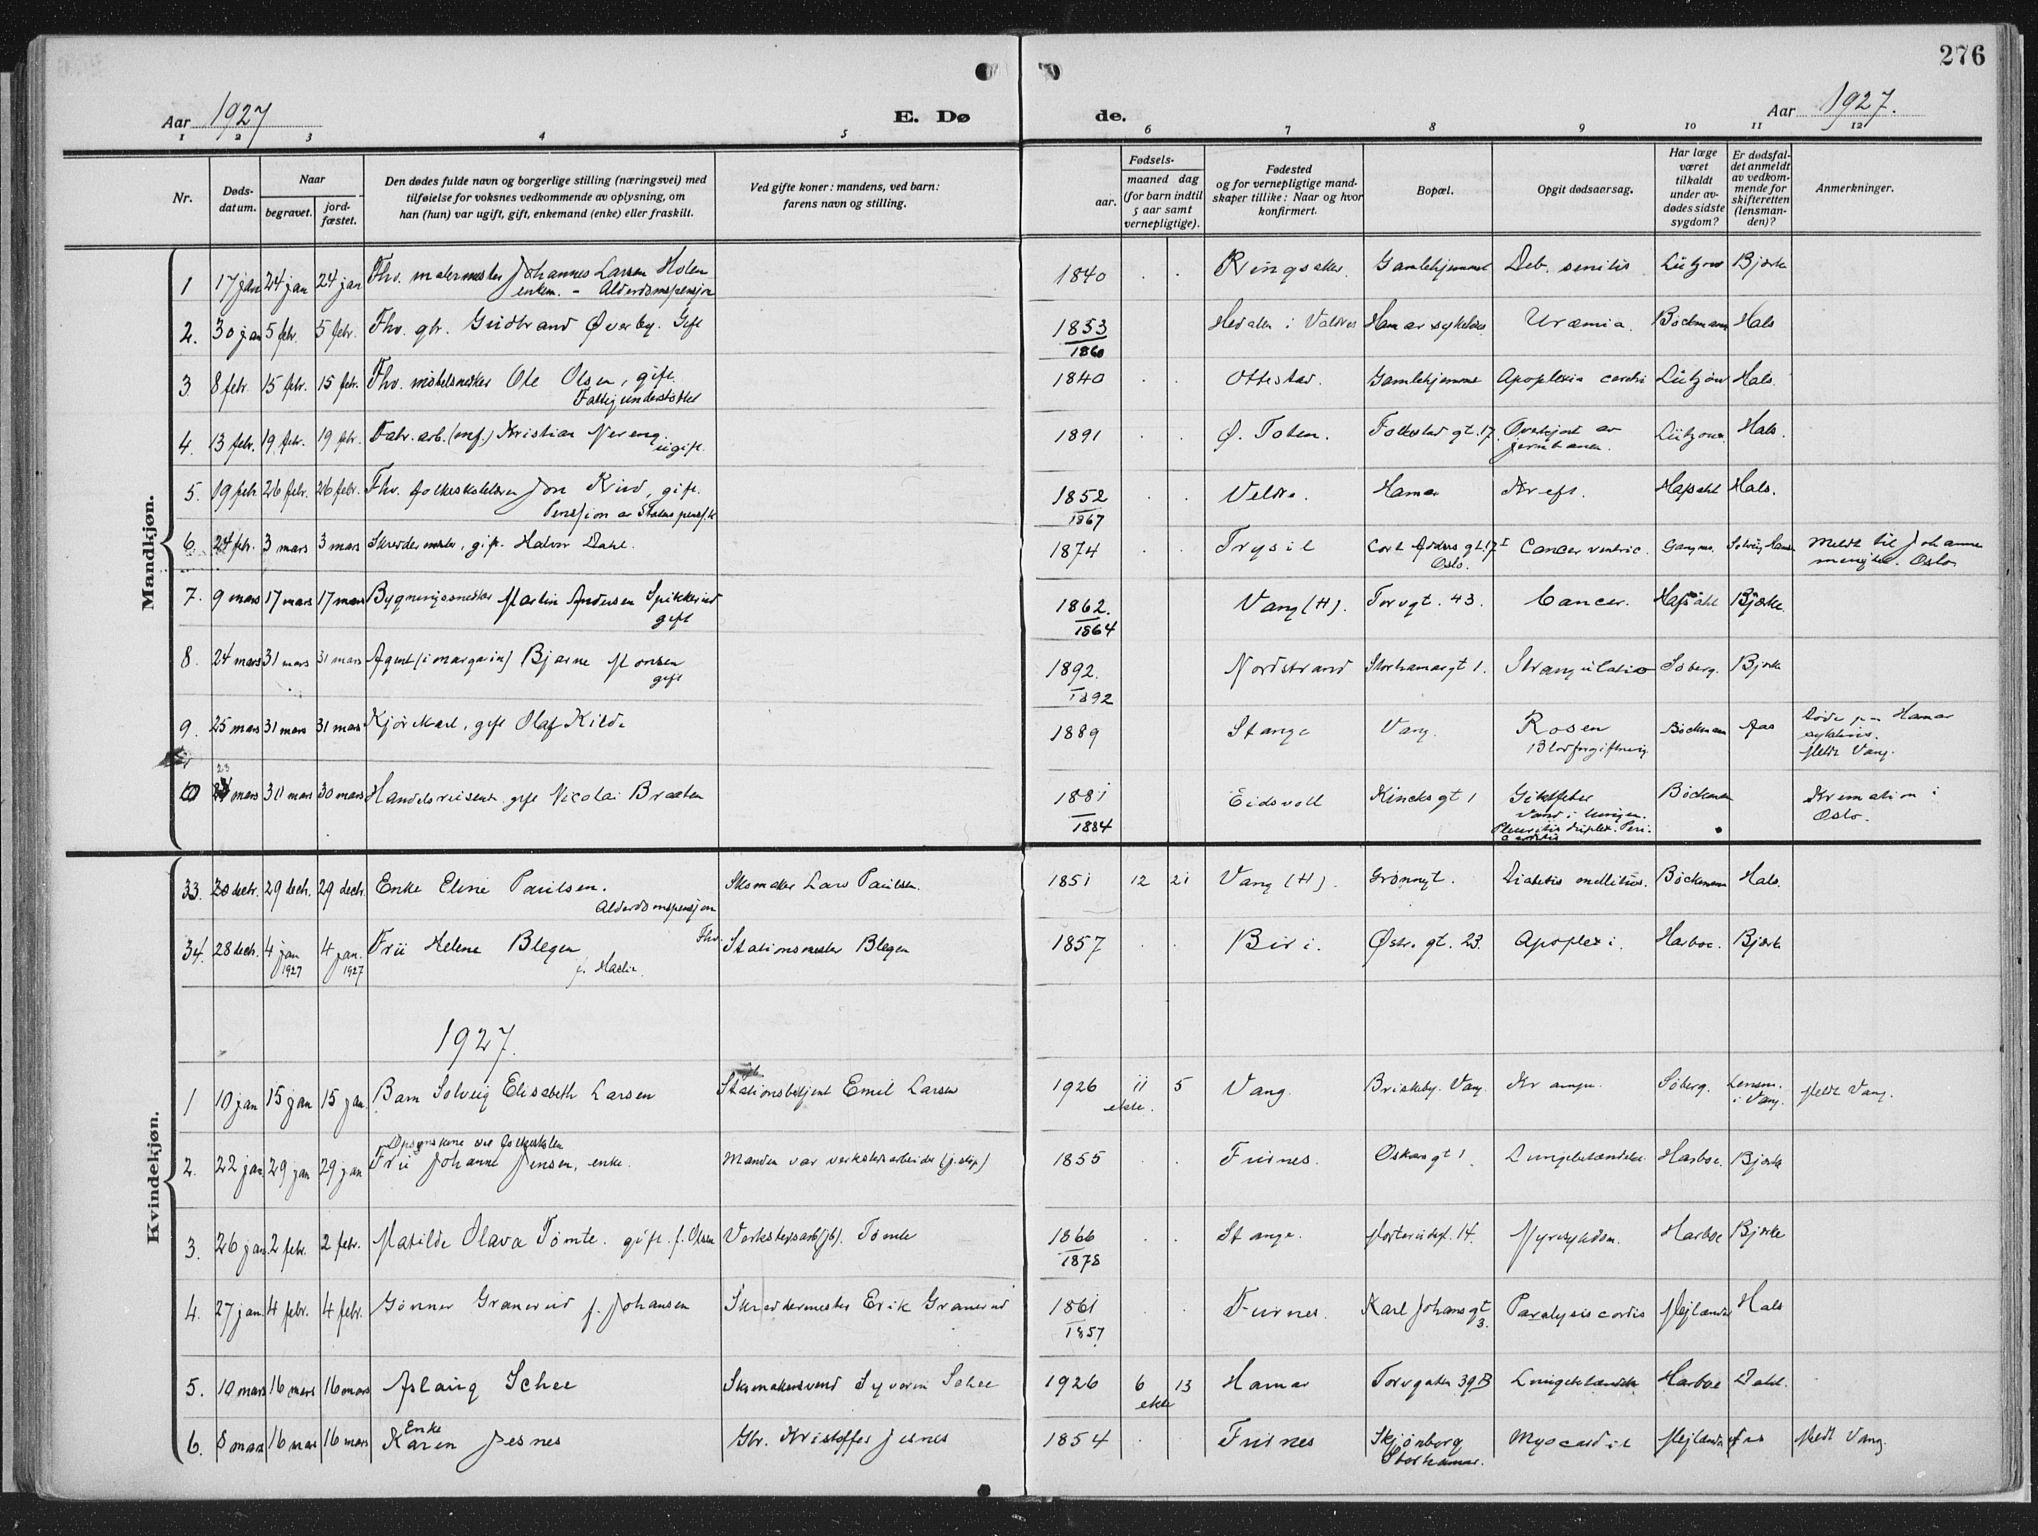 276
Aar 1927
E. Dø
de.
Aar 1927.
1 2 3 4 5 6 7 8 9 10 11 12
Nr.
Døds-
datum.
Naar
begravet.
jord-
fæstet.
Den dødes fulde navn og borgerlige stilling (næringsvei) med
tilføielse for voksnes vedkommende av oplysning, om
han (hun) var ugift, gift, enkemand (enke) eller fraskilt.
Ved gifte koner: mandens, ved barn:
farens navn og stilling.
Fødsels-
aar.
maaned dag
(for barn indtil
5 aar samt
vernepligtige).
Fødested
og for vernepligtige mand-
skaper tillike: Naar og hvor
konfirmert.
Bopæl.
Opgit dødsaarsag.
Har læge
været
tilkaldt
under av-
dødes sidste
sygdom?
Er dødsfal-
det anmeldt
av vedkom-
mende for
skifteretten
(lensman-
den)?
Anmerkninger.
Mandkjøn.
1 17 jan 24 jan 24 jan Fhv. malermester Johannes Larsen Holen 1840 Ringsaker. Gamlehjemmet Deb. senilis Lützow Bjerke
enkem. - Alderdomspensjon
2. 30 jan 5 febr. 5 febr. Fhv. gbr. Gudbrand Øverby. Gift 1853 Hedalen i Valdres Hamar sykehus Uræmia. Böckmann Hals
1860
3 8 febr. 15 febr. 15 febr. Fhv. møbelsnekker Ole Olsen, gift. 1840 Ottestad. Gamlehjemmet Apoplexia cerebri Lützow Hals.
Fattigunderstøttet
4. 13 febr. 19 febr. 19 febr. Fabr. arb. (mf.) Kristian Nereng 1891 Ø. Toten. Folkestad gt. 17. Overkjørt av Lützow Hals.
ugift. jernbanen.
5. 19 febr 26 febr. 26 febr. Fhv. folkeskolelærer Jon Rud, gift. 1852 Veldre. Hamar Kreft. Hafsahl Hals.
Pensjon av Statens pensj.k 1867
6. 24 febr. 3 mars 3 mars Skreddermester, gift. Halvor Dahl. 1874 Trysil Cort Adelers gt. 17 I Cancer ventric. Solveig Hansen Meldt til Johannes
Oslo. menighet. Oslo
7. 9 mars 17 mars 17 mars Bygningssnekker Martin Andersen Spikkerud 1862. Vang (H). Torvgt. 43. Cancer. Hafsahl Bjerke.
gift 1864
8. 24 mars 31 mars 31 mars Agent (i margarin) Bjarne Monsen 1892. Nordstrand Storhamargt 1. Strangulatio Soberg. Bjerke
gift 1892
9. 25 mars 31 mars 31 mars Kjørekarl, gift Olaf Kilde 1889 Stange Vang. Rosen Böckman Aas Døde paa Hamar
Blodforgiftning sykehus.
Meldt Vang.
23
10 mars 30 mars 30 mars Handelsreisende gift Nicolai Braaten 1881 Eidsvoll Kincks gt 1 Giktfeber Böckman Kremation i
1884 Vand i lungen. Oslo.
Pleuritis duplex. Peri-
carditis
Kvindekjøn.
33. 20 decbr. 29 decbr. 29 decbr. Enke Eline Paulsen. Skomaker Lars Paulsen. 1851 12 21 Vang (H). Grønnegt. Diabetis mellitus. Böckman Hals.
Alderdomspensjon
34. 28 decbr. 4 jan 4 jan. Fru Helene Blegen Fhv. Stationsmester Blegen 1857 Biri. Østre gt. 23. Apoplexi. Harboe. Bjerke
1927 1927
1927.
1 10 jan 15 jan 15 jan Barn Solveig Elisabeth Larsen Stationsbetjent Emil Larsen 1926 11 5 Vang. Briskeby. Vang. Krampe. Soberg. Lensm. Meldt Vang.
ekte. i Vang.
2. 22 jan. 29 jan 29 jan Fru Johanne Jensen, enke. Manden var verkstedsarbeider 1855 Furnes. Oskarsgt 1. Lungebetændelse. Harboe. Bjerke
3. 26 jan 2 febr. 2 febr. Matilde Olava Tømte. gift. f. Olsen Verkstedsarb. (jb). Tømte 1866 Stange. 14. Nyresykdom. Harboe Bjerke
1878
4. 27 jan 4 febr. 4 febr. Gunner Granerud f. Johansen Skreddermester Erik Granerud 1861 Furnes. Karl Johansgt 3. Paralysis cordis Mejlænder Hals
1857
5. 10 mars 16 mars 16 mars Aslaug Schee Skomakersvend Syverin Schee 1926 6 13 Hamar Torvgaten 39B Lungebetændelse Harboe Dahl.
ekte
6. 8 mars 16 mars 16 mars Enke Karen Jesnes Gbr. Kristoffer Jesnes 1854 Furnes Skjønborg Myocardit Mejlænder Aas Meldt Vang.
Storhamar.